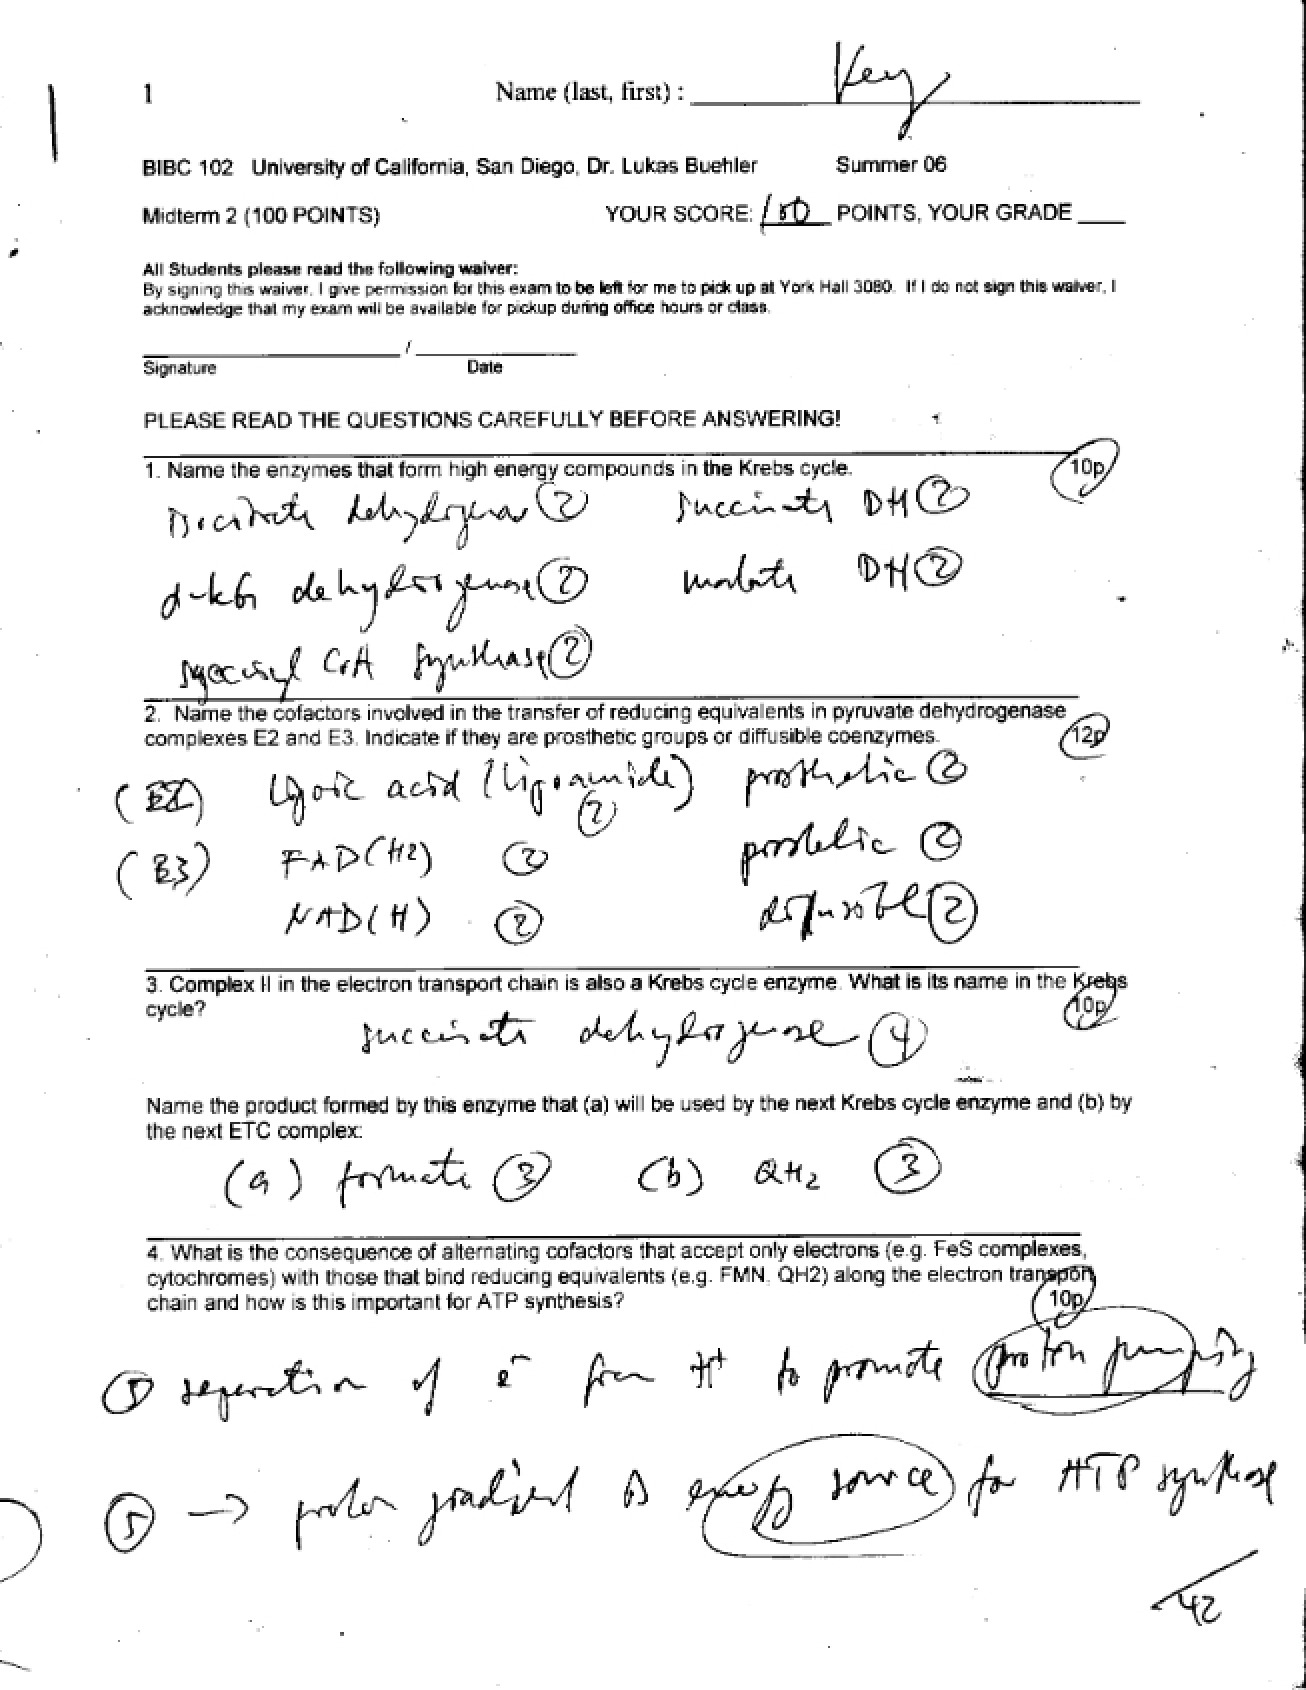 1 Name (last, first) : Key
BIBC 102 University of California, San Diego, Dr. Lukas Buehler Summer 06
Midterm 2 (100 POINTS) YOUR SCORE: 100 POINTS, YOUR GRADE ____
All Students please read the following waiver:
By signing this waiver, I give permission for this exam to be left for me to pick up at York Hall 3080. If I do not sign this waiver, I
acknowledge that my exam will be available for pickup during office hours or class.
/
Signature Date
PLEASE READ THE QUESTIONS CAREFULLY BEFORE ANSWERING!
1. Name the enzymes that form high energy compounds in the Krebs cycle. 10p
Isocitrate dehydrogenase 2 succinate DH 2
α-kG dehydrogenase 2 malate DH 2
succinyl CoA synthase 2
2. Name the cofactors involved in the transfer of reducing equivalents in pyruvate dehydrogenase
complexes E2 and E3. Indicate if they are prosthetic groups or diffusible coenzymes. 12p
(E2) Lipoic acid (lipoamide) 2 prosthetic 2
(E3) FAD(H2) 2 prostetic 2
NAD(H) 2 diffusible 2
3. Complex II in the electron transport chain is also a Krebs cycle enzyme. What is its name in the Krebs
cycle? 10p
succinate dehydrogenase 4
Name the product formed by this enzyme that (a) will be used by the next Krebs cycle enzyme and (b) by
the next ETC complex:
(a) 3 (b) QH2 3
4. What is the consequence of alternating cofactors that accept only electrons (e.g. FeS complexes,
cytochromes) with those that bind reducing equivalents (e.g. FMN, QH2) along the electron transport
chain and how is this important for ATP synthesis? 10p
5 seperation of e- from H+ to promote proton pumping
5 → proton gradient is energy source for ATP synthase
42